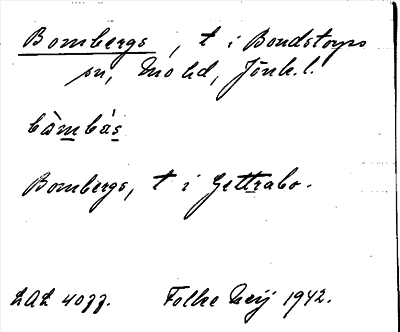 Bombergs, t i Bondstorps
sn, Mo hd, Jönk.l.
bàmbás
Bombergs, t i Gettrabo.
LAL 4077.   Folke Neij 1942.